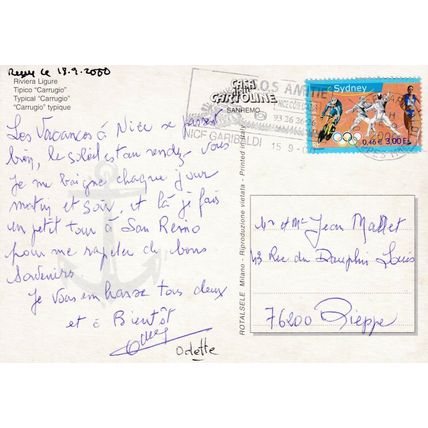 Reçu le 18.9.2000
Riviera Ligure
Tipico "Carrugio"
Typical "Carrugio"
"Carrugio" typique
Les Vacances à Nice se passent
bien, le soleil est au rendez-vous
Je me baigne chaque jour
matin et soir, et là je fais
un petit tour à San Remo
pour me rappeler de bons
souvenirs
Je vous embrasse tous deux
et à Bientôt
Odette
CASA DELLE
CARTOLINE
SANREMO
S.O.S AMITIE
93 26 26
NICE GARIBALDI
15 9-
Sydney
0,46 € 3,00 F
ROTALSELE Milano - Riproduzione vietata - Printed in Italy
Mr et Me Jean Mallet
43 Rue du Dauphin Louis
76200 Dieppe